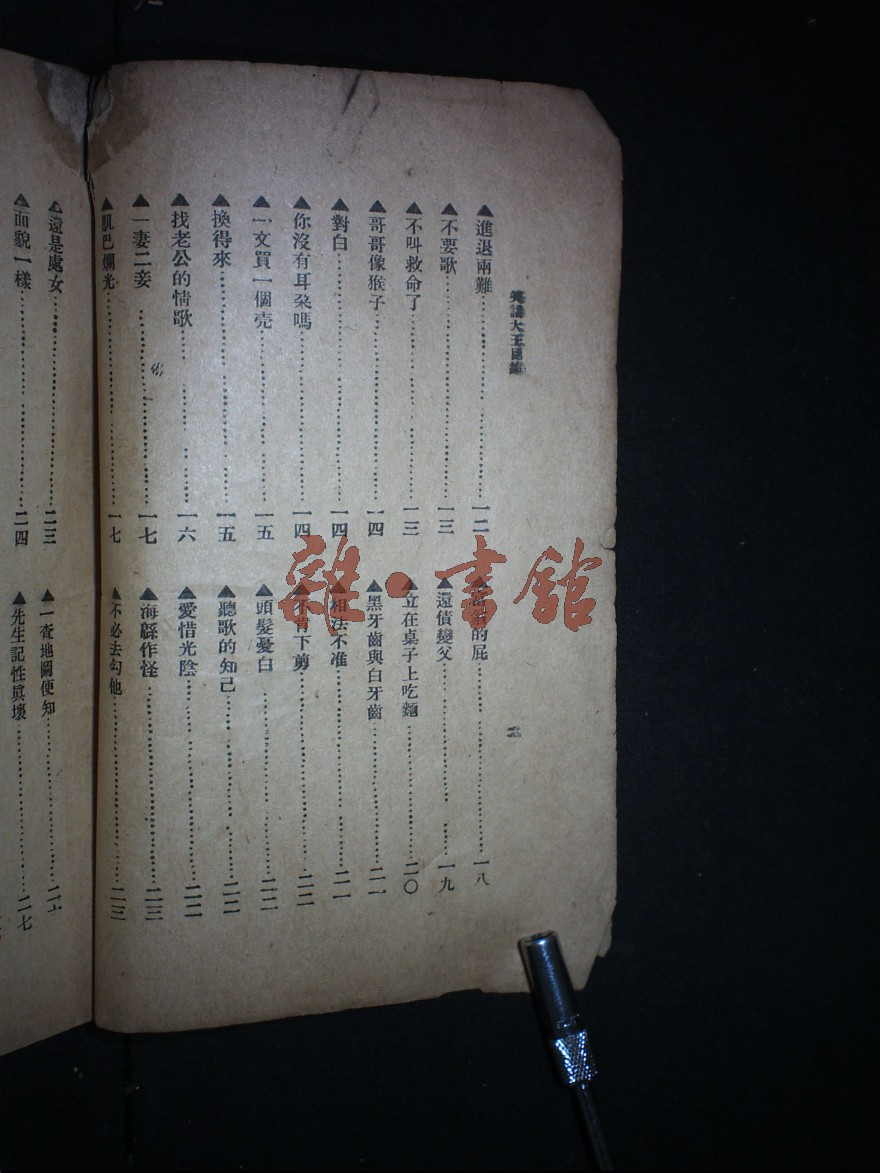 笑話大王目錄
▲進退兩難……一二
▲不要歌……一三
▲不叫救命了……一三
▲哥哥像猴子……一四
▲對白……一四
▲你沒有耳朶嗎……一四
▲一文買一個壳……一五
▲換得來……一五
▲找老公的情歌……一六
▲一妻二妾……一七
▲肌巴爛光……一七
的屁……一八
▲還債變父……一九
▲立在桌子上吃麵……二〇
▲黑牙齒與白牙齒……二一
▲相法不准……二一
▲不肯下剪……二二
▲頭髮憂白……二二
▲聽歌的知己……二二
▲愛惜光陰……二二
▲海縣作怪……二三
▲不必去勾他……二三
二
▲還是處女……二三
▲面貌一樣……二四
▲一查地圖便知……二
▲先生記性眞壞……二七
雜·書館